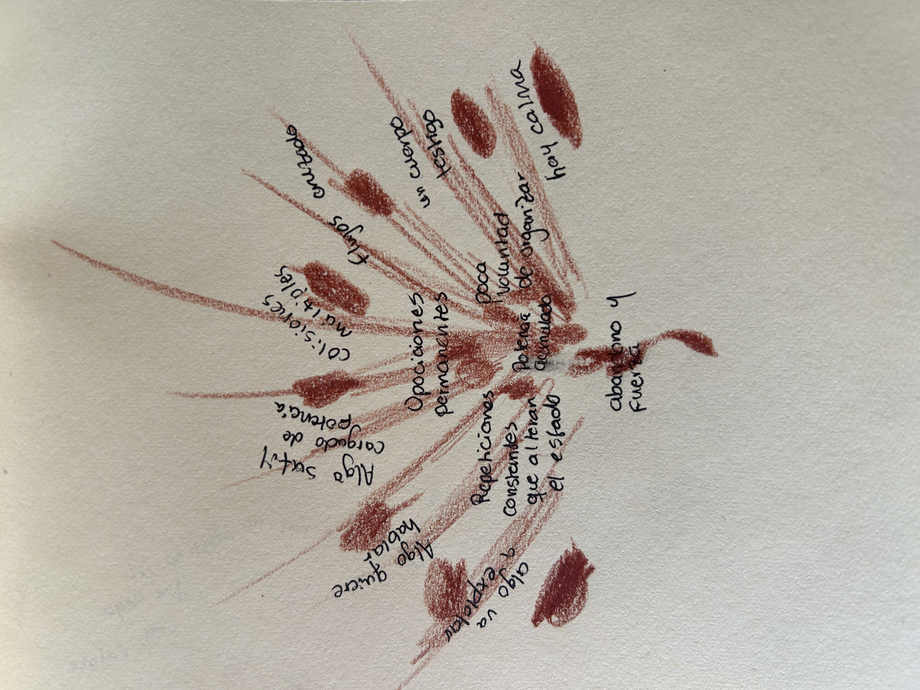 hay calma
un cuerpo
testigo
poca
voluntad
de organizar
flujos cruzado
colisiones
multiples
Opociciones
permanentes
Potencia
acumulada
abandono y
fuerza
Algo sutil y
cargado de
potencia
Repeticiones
constantes
que alteran
el estado
Algo quiere
hablar
algo va
a explotar